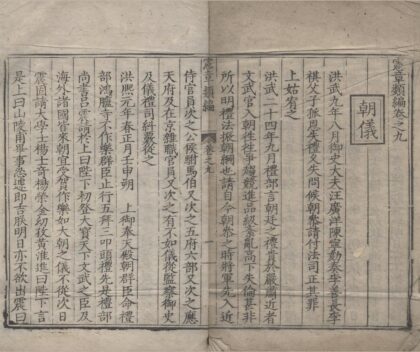 憲章類編卷之九
朝儀
洪武九年八月御史大夫汪廣洋陳寧劾奏李善長李
祺父子孤恩失禮又失問候朝參請付法司正其罪
上姑宥之
洪武二十四年九月禮部言朝廷之禮貴於嚴肅近者
文武官入朝往往爭趨競進品級紊亂高下失倫甚非
所以明禮法振朝綱也請自今朝參之時將軍先入近
侍官員次之公侯駙馬伯又次之五府六部又次之應
天府及在京雜職官員又次之有不如儀從監察御史
及儀禮司糾察從之
憲章類編
卷之九
一
洪熙元年春正月壬申朔
上御奉天殿朝群臣命禮
部鴻臚寺不作樂群臣止行五拜三叩頭禮先是禮部
尚書呂震請於上曰陛下初登大寶天下文武之臣及
海外諸國皆來朝宜受賀作樂如大朝之儀不從次日
震固請大學士楊士奇楊榮金幼孜黃淮進曰陛下言
是上曰山陵甫畢事忽遽即吉朕明日亦不欲出震曰